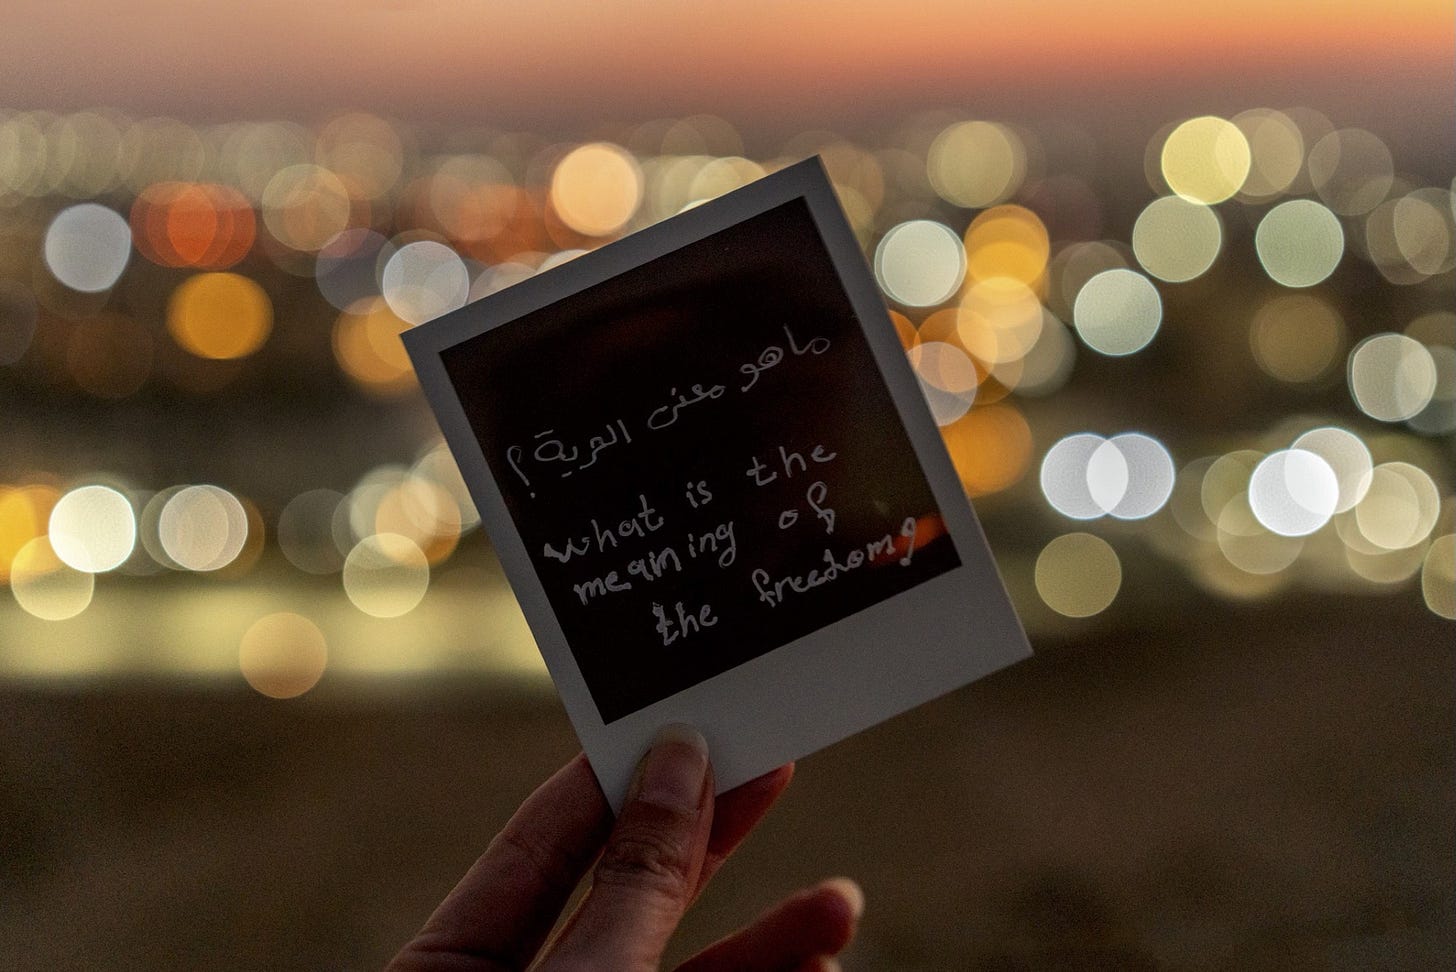 ماهو معنى الحرية؟
what is the
meaning of
the freedom?